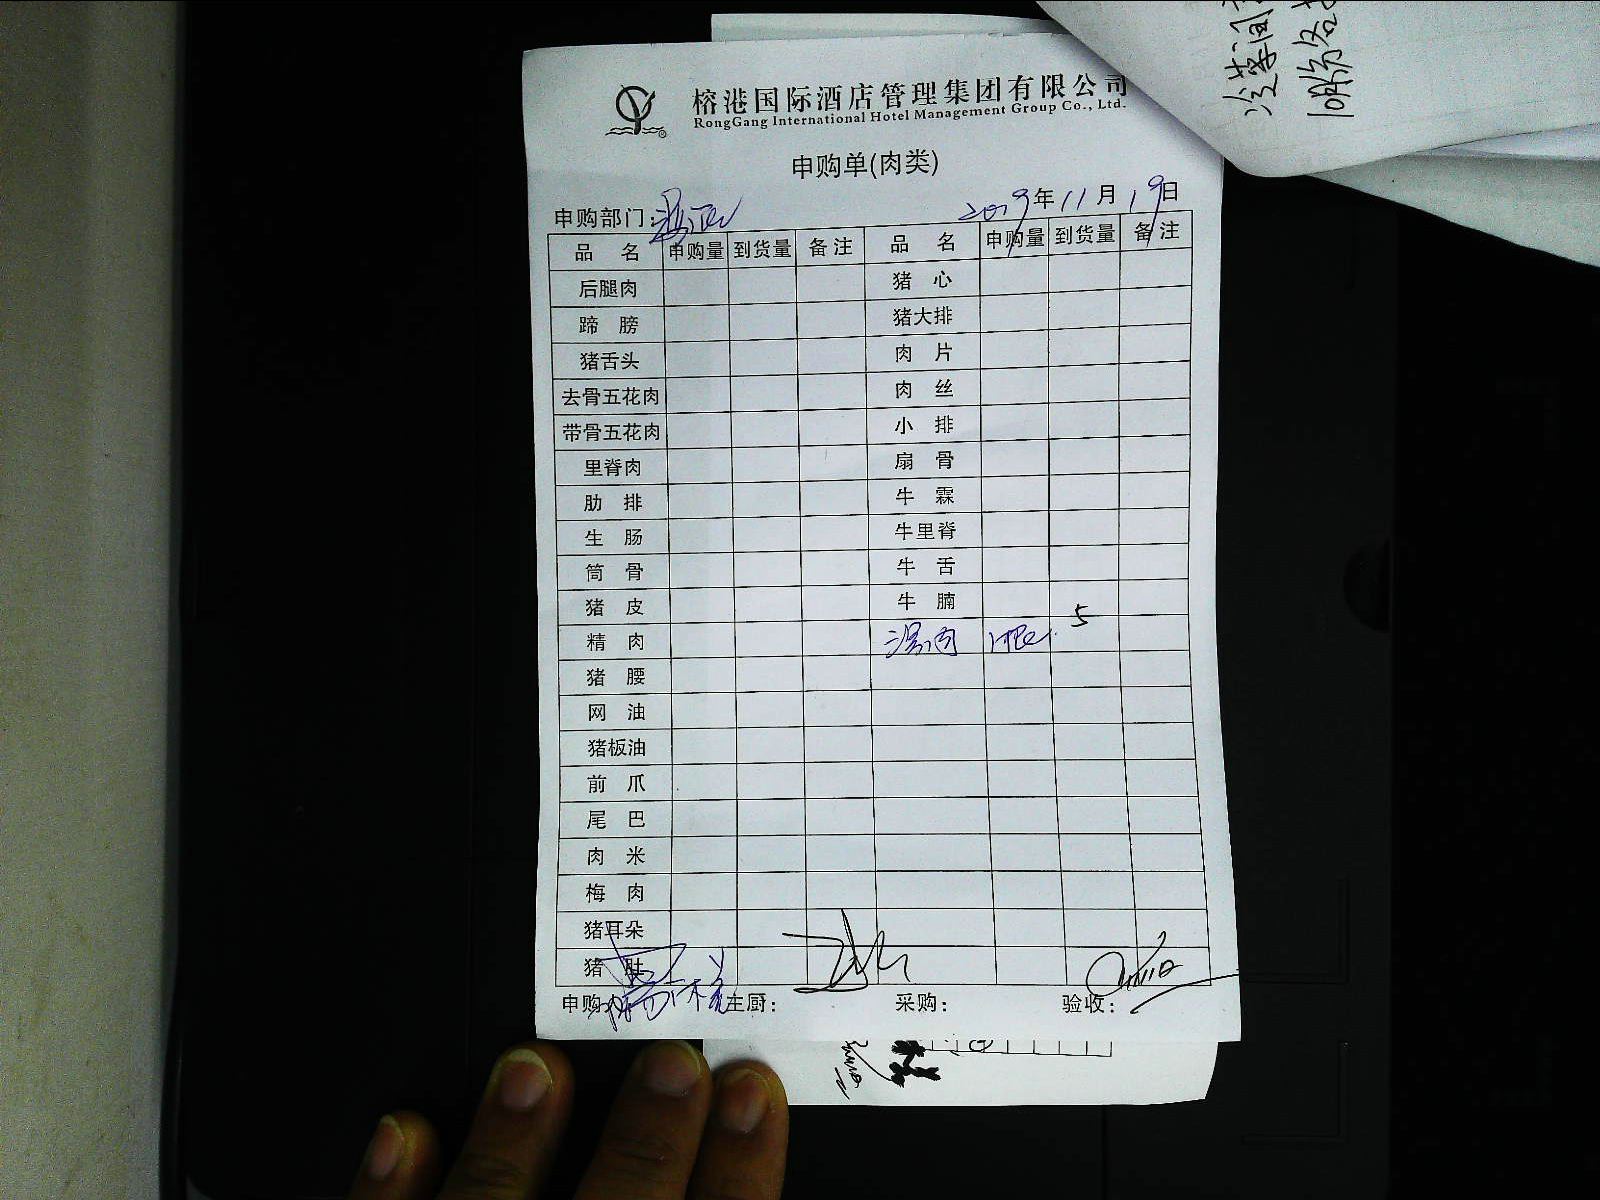 榕港国际酒店管理集团有限公司
RongGang International Hotel Management Group Co., Ltd.
申购单(肉类)
申购部门：
2019年11月19日
品 名 申购量 到货量 备注 品 名 申购量 到货量 备注
后腿肉 猪 心
蹄 膀 猪大排
猪舌头 肉 片
去骨五花肉 肉 丝
带骨五花肉 小 排
里脊肉 扇 骨
肋 排 牛 霖
生 肠 牛里脊
筒 骨 牛 舌
猪 皮 牛 腩
精 肉 5
猪 腰
网 油
猪板油
前 爪
尾 巴
肉 米
梅 肉
猪耳朵
猪 肚
申购人 主厨： 采购： 验收：